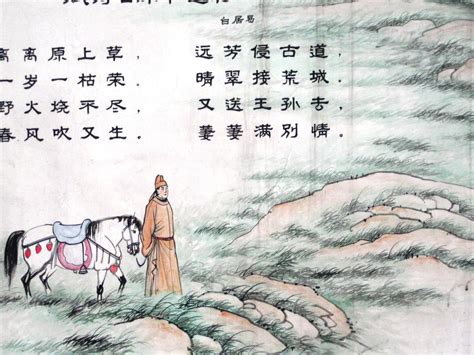 白居易
离离原上草， 远芳侵古道，
一岁一枯荣。 晴翠接荒城。
野火烧不尽， 又送王孙去，
春风吹又生。 萋萋满别情。